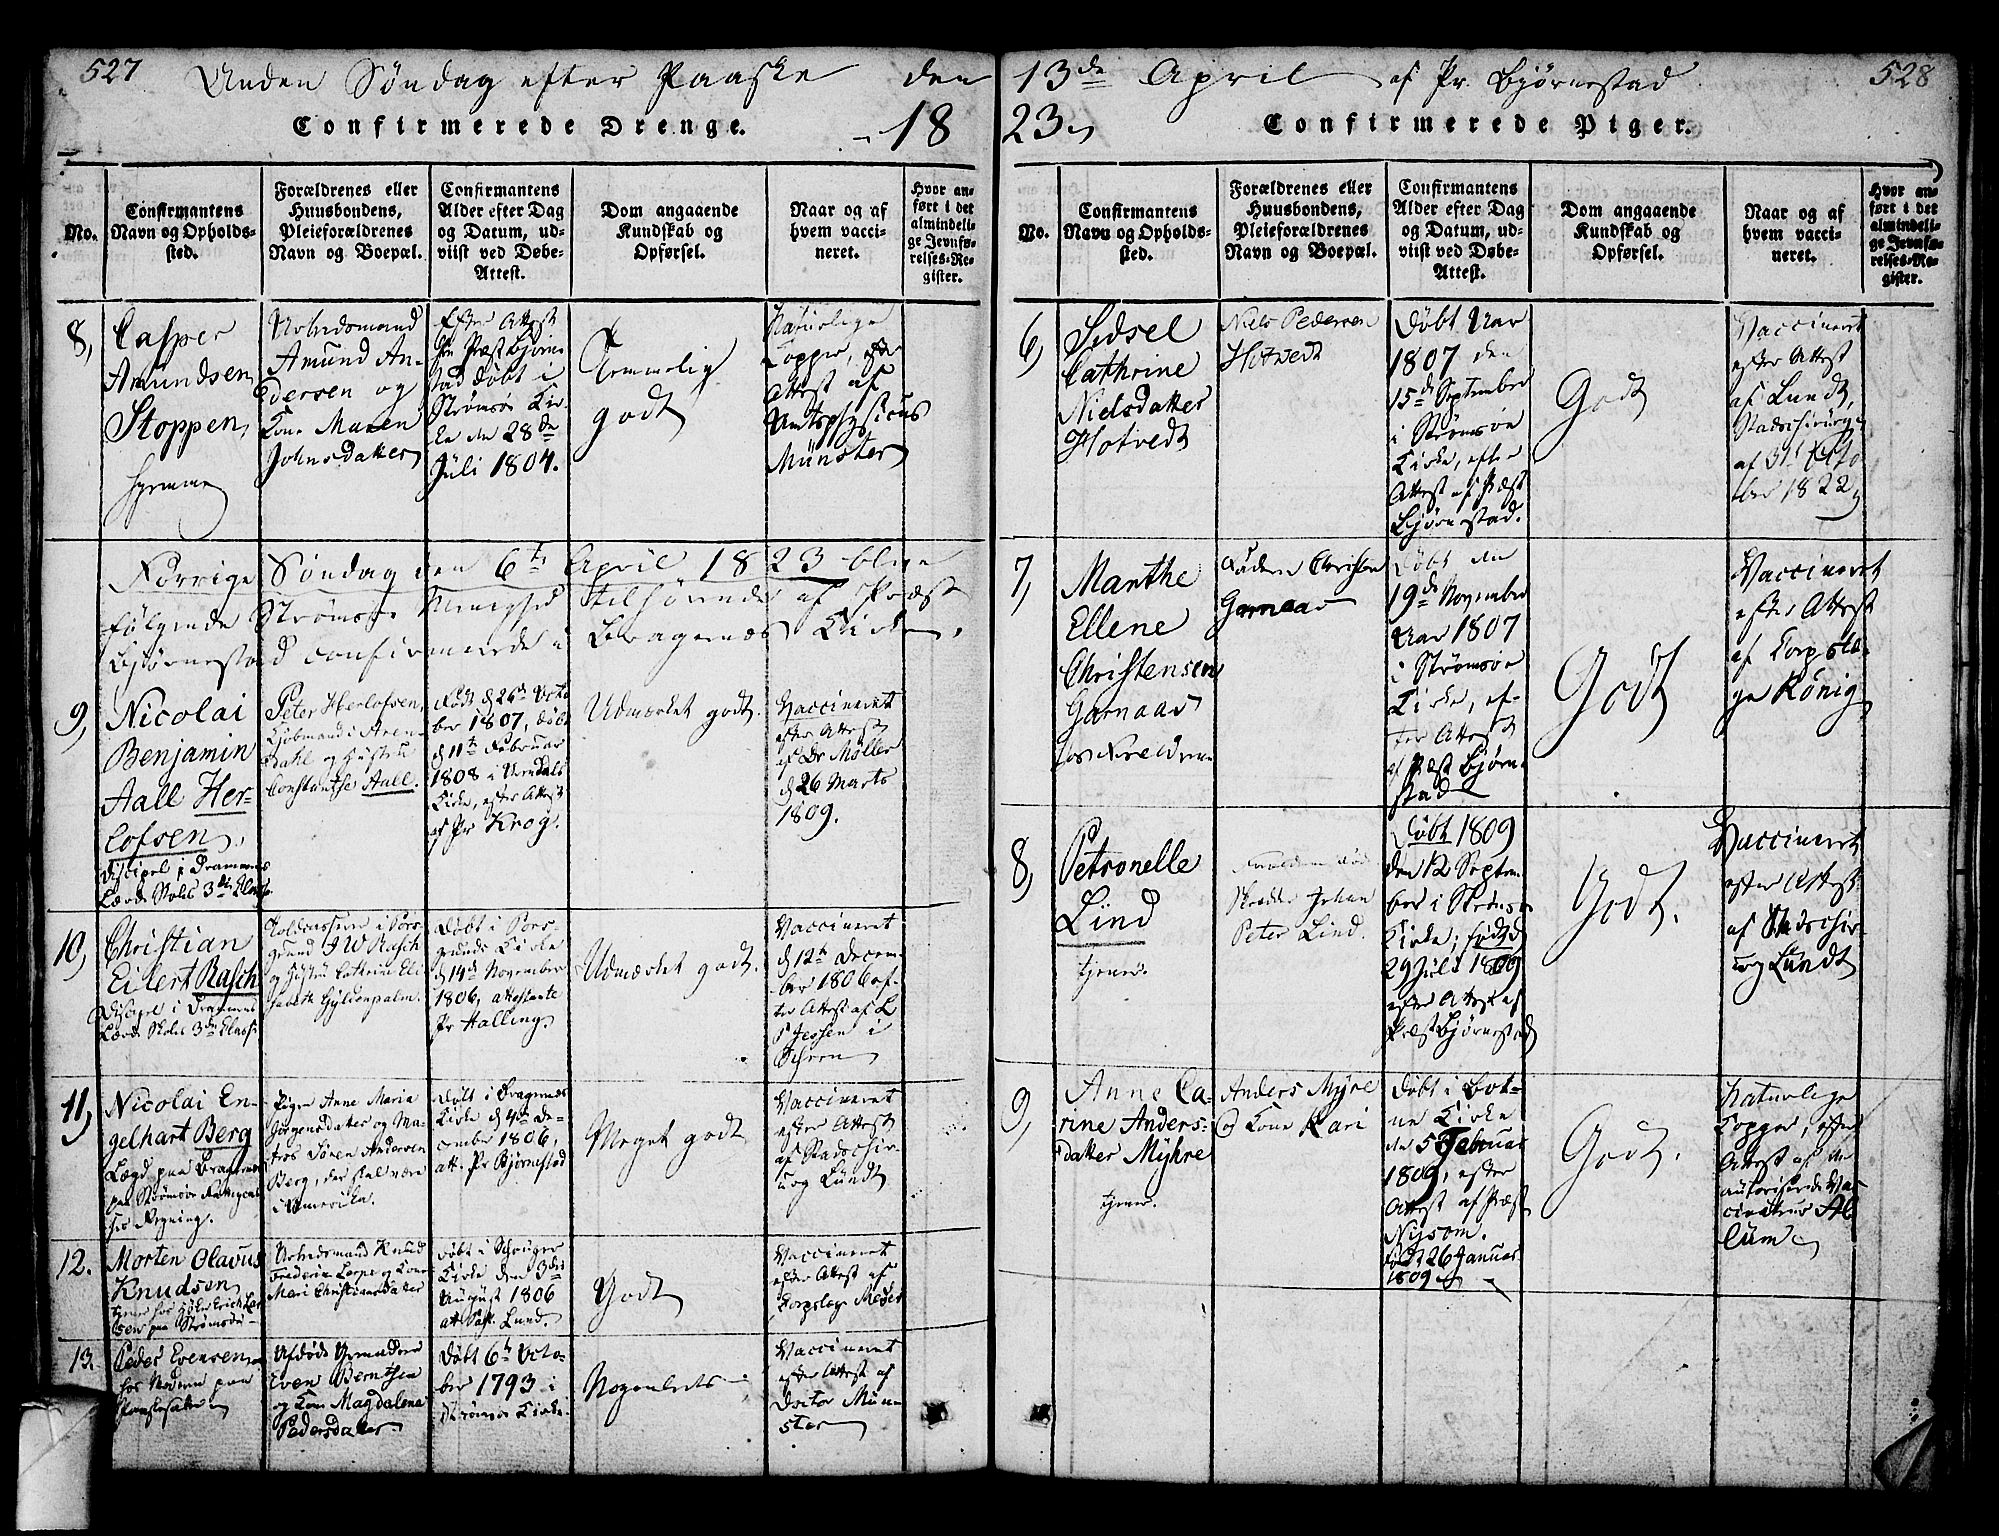 527
Anden Søndag efter Paaske den
Confirmerede Drenge.
18
No.
Confirmantens
Navn og Opholds-
sted.
Forældrenes eller
Huusbondens,
Pleieforældrenes
Navn og Boepæl.
Confirmantens
Alder efter Dag
og Datum, ud-
viist ved Døbe-
Attest.
Dom angaaende
Kundskab og
Opførsel.
Naar og af
hvem vacci-
neret.
Hvor an-
ført i det
almindeli-
ge Jevnfø-
relses-Re-
gister.
8,
Casper
Amundsen
Stoppen,
hjemme
Arbeidsmand
Amund An-
dersen og
Kone Maren
Johnsdatter
Efter Attest
fra Præst Bjørne-
stad døbt i
Strømsø Kir-
ke den 28de
Juli 1804.
Temmelig
godt
Naturlige
Kopper, efter
Attest af
Amtsphysicus
Münster
Forrige Søndag den 6te April 1823 bleve
følgende Strømsøe Menighed tilhørende af Præst
Bjørnestad confirmerede i Bragernes Kirke.
9,
Nicolai
Benjamin
Aall Her-
lofsen.
Discipel i Drammens
Lærde Skoles 3die Classe
Peter Herlofsen,
Kjøbmand i Aren-
dahl og Hustru
Constantse Aall.
Født d 26de Octo-
ber 1807, døbt
d 11te Februar
1808 i Arendals
Kirke, efter Attest
af Pr Krog.
Udmærket godt.
Vaccineret
efter Attest
af Dr Møller
d 26 Marts
1809.
10,
Christian
Eilert Rasch
Discipel i Drammens
Lærde Skoles 3die Classe
Toldcasserer i Pors-
grund J W Rasch
og Hustru Cathrine Eli-
sabeth Gyldenpalm.
Døbt i Pors-
grunds Kirke
d 14de November
1806, attesterte
Pr Halling.
Udmærket godt.
Vaccineret
d 12te Decem-
ber 1806 ef-
ter Attest af L
S Jessen i
Skeen
11,
Nicolai En-
gelhart Berg
Lægd paa Bragernes
paa Strømsøe Fattigcas-
ses Regning.
Pigen Anne Maria
Jørgensdatter og Ma-
tros Søren Andersen
Berg, der skal være
i Amerika.
Døbt i Bragernes
Kirke d 4de De-
cember 1806,
att. Pr Bjørnestad
Meget godt
Vaccineret
efter Attest
af Stadschir-
urg Lundt
12.
Morten Olavus
Knudsen
tjener hos Erich Lar-
sen paa Strømsøe
Arbeidsmand Knud
Frederik og Kone
Mari Christiansdatter
Døbt i Skouger
Kirke den 3die
August 1806
att Past. Lund.
Godt
Vaccineret
efter Attest af
Corpslæge Meyer
13.
Peder Evensen
hos Moderen paa
Afdøde
Even Berntsen
og Kone Magdalene
Pedersdatter
Døbt 6te Octo-
ber 1793 i
Strømsøe Kirke.
Nogenledes
Vaccineret
efter Attest af
Doctor Mün-
ster
13de April af Pr. Bjørnestad
528
23
Confirmerede Piger.
No.
Confirmantens
Navn og Opholds-
sted.
Forældrenes eller
Huusbondens,
Pleieforældrenes
Navn og Boepæl.
Confirmantens
Alder efter Dag
og Datum, ud-
viist ved Døbe-
Attest.
Dom angaaende
Kundskab og
Opførsel.
Naar og af
hvem vacci-
neret.
Hvor an-
ført i det
almindeli-
ge Jevnfø-
relses-Re-
gister.
6,
Sidsel
Cathrine
Nielsdatter
Hotvedt
Niels Pedersen
Hotvedt
Døbt Aar
1807 den
15de September
i Strømsøe
Kirke, efter
Attest af Præst
Bjørnestad.
Godt
Vaccineret
efter Attest
af Lundt,
Stadschirurg
af 31t Octo-
ber 1822
7,
Marthe
Ellene
Christensen
Garnaas
Faderen Christen
Garnaas
Døbt den
19de November
Aar 1807
i Strømsøe
Kirke, ef-
ter Attest
af Præst Bjørn-
stad
Godt
Vaccineret
efter Attest
af Corpslæ-
ge König
8,
Petronelle
Lind
tjener.
Skrædder Johan
Peter Lind.
Døbt 1809
den 12 Septem-
ber i Strømsøe
Kirke; født d
29 Juli 1809
efter Attest af
Præst Bjørnestad
Godt.
Vaccineret
efter Attest
af Stadschir-
urg Lundt
9,
Anne Ca-
rine Anders-
datter Myhre
tjener.
Anders Myre
og Kone Kari
Døbt i Bot-
ne Kirke
den 5 Februar
1809, efter
Attest af Præst
Nysom.
født 26 Januar
1809
Godt.
Naturlige
Kopper, efter
Attest af den
autoriserede Vac-
cinateur